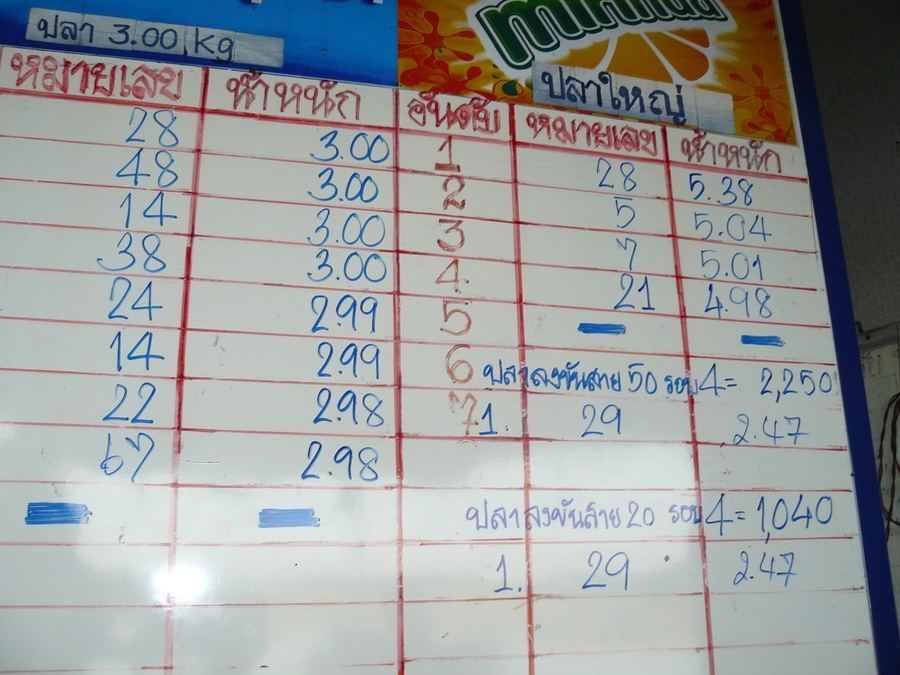 mirinda
ปลา 3.00 kg
ปลาใหญ่
หมายเลข น้ำหนัก อันดับ หมายเลข น้ำหนัก
28 3.00 1 28 5.38
48 3.00 2 5 5.04
14 3.00 3 7 5.01
38 3.00 4 21 4.98
24 2.99 5
14 2.99 6 ปลาลงขันสาย 50 รอบ 4 = 2,250
22 2.98 7 1. 29 2.47
67 2.98
ปลาลงขันสาย 20 รอบ 4 = 1,040
1. 29 2.47